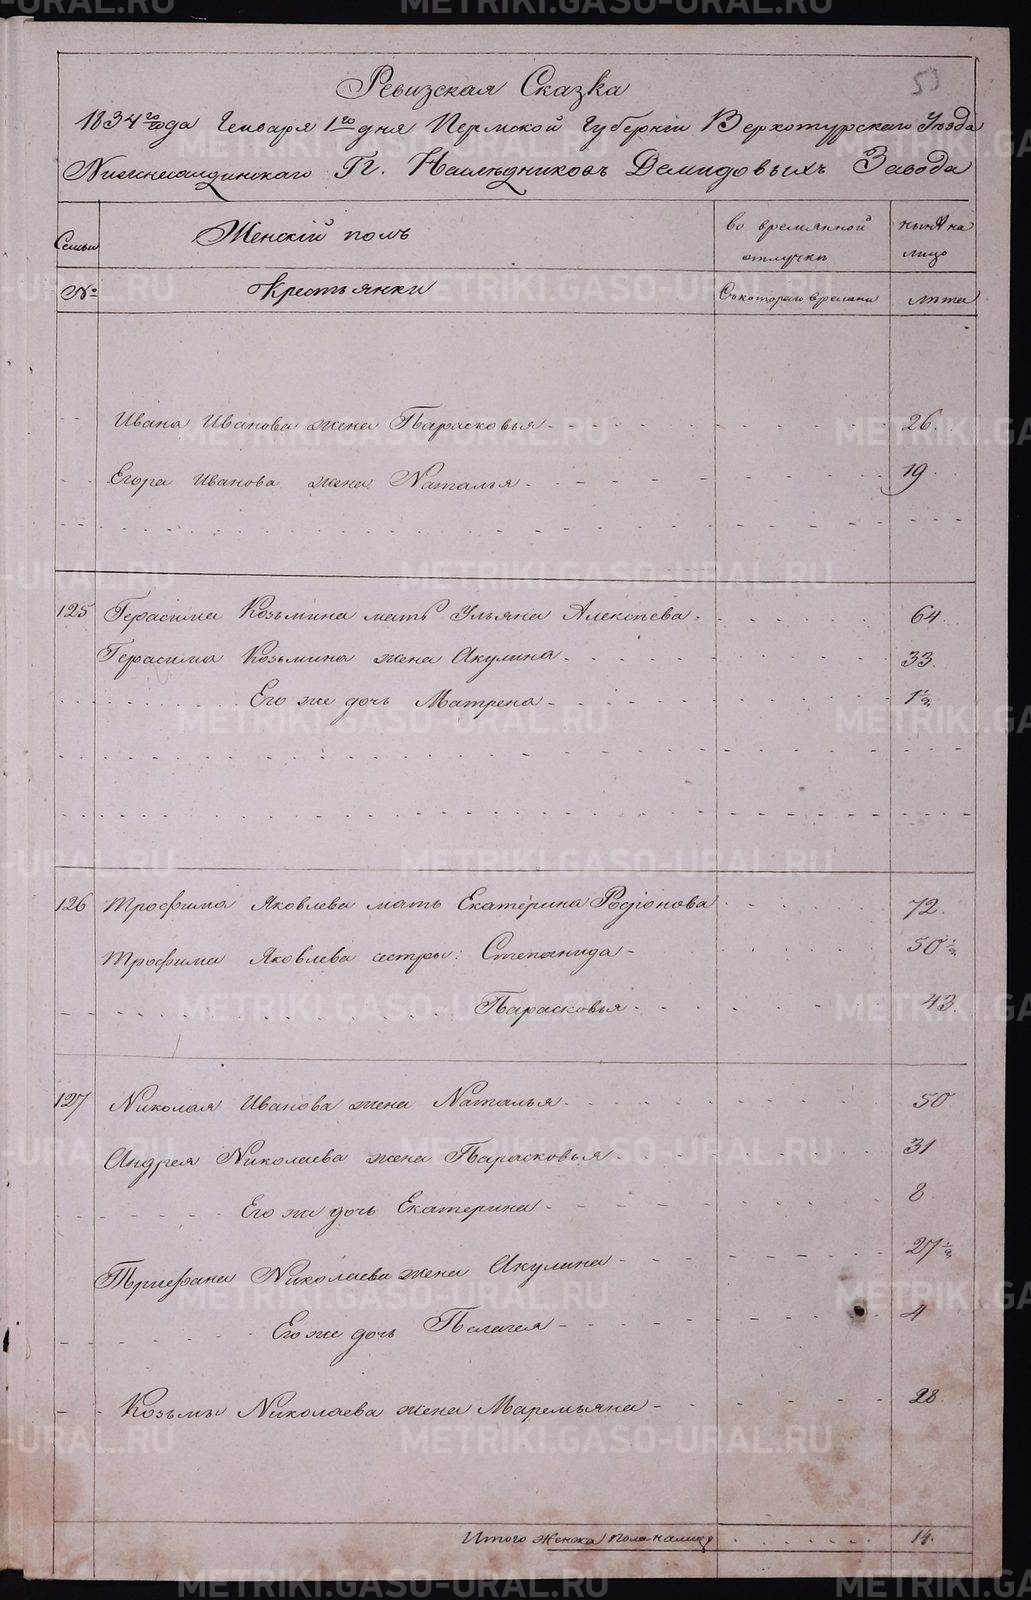 53
Ревизская Сказка
1834го года Генваря 1го дня Пермской Губерніи Верхотурскаго Уѣзда
Нижнесалдинскаго Гг. Наслѣдниковъ Демидовыхъ Завода
Семьи
Женскій полъ
во времянной отлучкѣ
нынѣ на лицо
№
Крестьянки
Съ котораго времяни
лѣта
Ивана Иванова жена Парасковья 26.
Егора Иванова жена Наталья 19.
125 Герасима Козьмина мать Ульяна Алексѣева 64.
Герасима Козьмина жена Акулина 33.
Его же дочь Матрена 1½
126 Трофима Яковлева мать Екатерина Родіонова 72.
Трофима Яковлева сестры: Степанида 50½
Парасковья 43.
127 Николая Иванова жена Наталья 50
Андрея Николаева жена Парасковья 31
Его же дочь Екатерина 8
Трифана Николаева жена Акулина 27½
Его же дочь Пелагея 4
Козьмы Николаева жена Маремьяна 28
Итого женска пола налицо 14.
METRIKI.GASO-URAL.RU